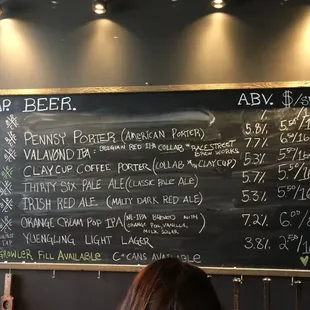 AP. BEER. ABV. $/
%
PENNSY PORTER (AMERICAN PORTER) 5.8%
VALAVOND IPA: BELGIAN RED IPA COLLAB W/ RACE STREET BREW WORKS 7.7%
CLAY CUP COFFEE PORTER (COLLAB W/ CLAY CUP) 5.3%
THIRTY SIX PALE ALE (CLASSIC PALE ALE) 5.7%
IRISH RED ALE (MALTY DARK RED ALE) 5.3%
ORANGE CREAM POP IPA (NE-IPA BREWED WITH ORANGE PEEL, VANILLA, MILK SUGAR) 7.2%
YUENGLING LIGHT LAGER 3.8%
GROWLER FILL AVAILABLE C*CANS AVAILABLE